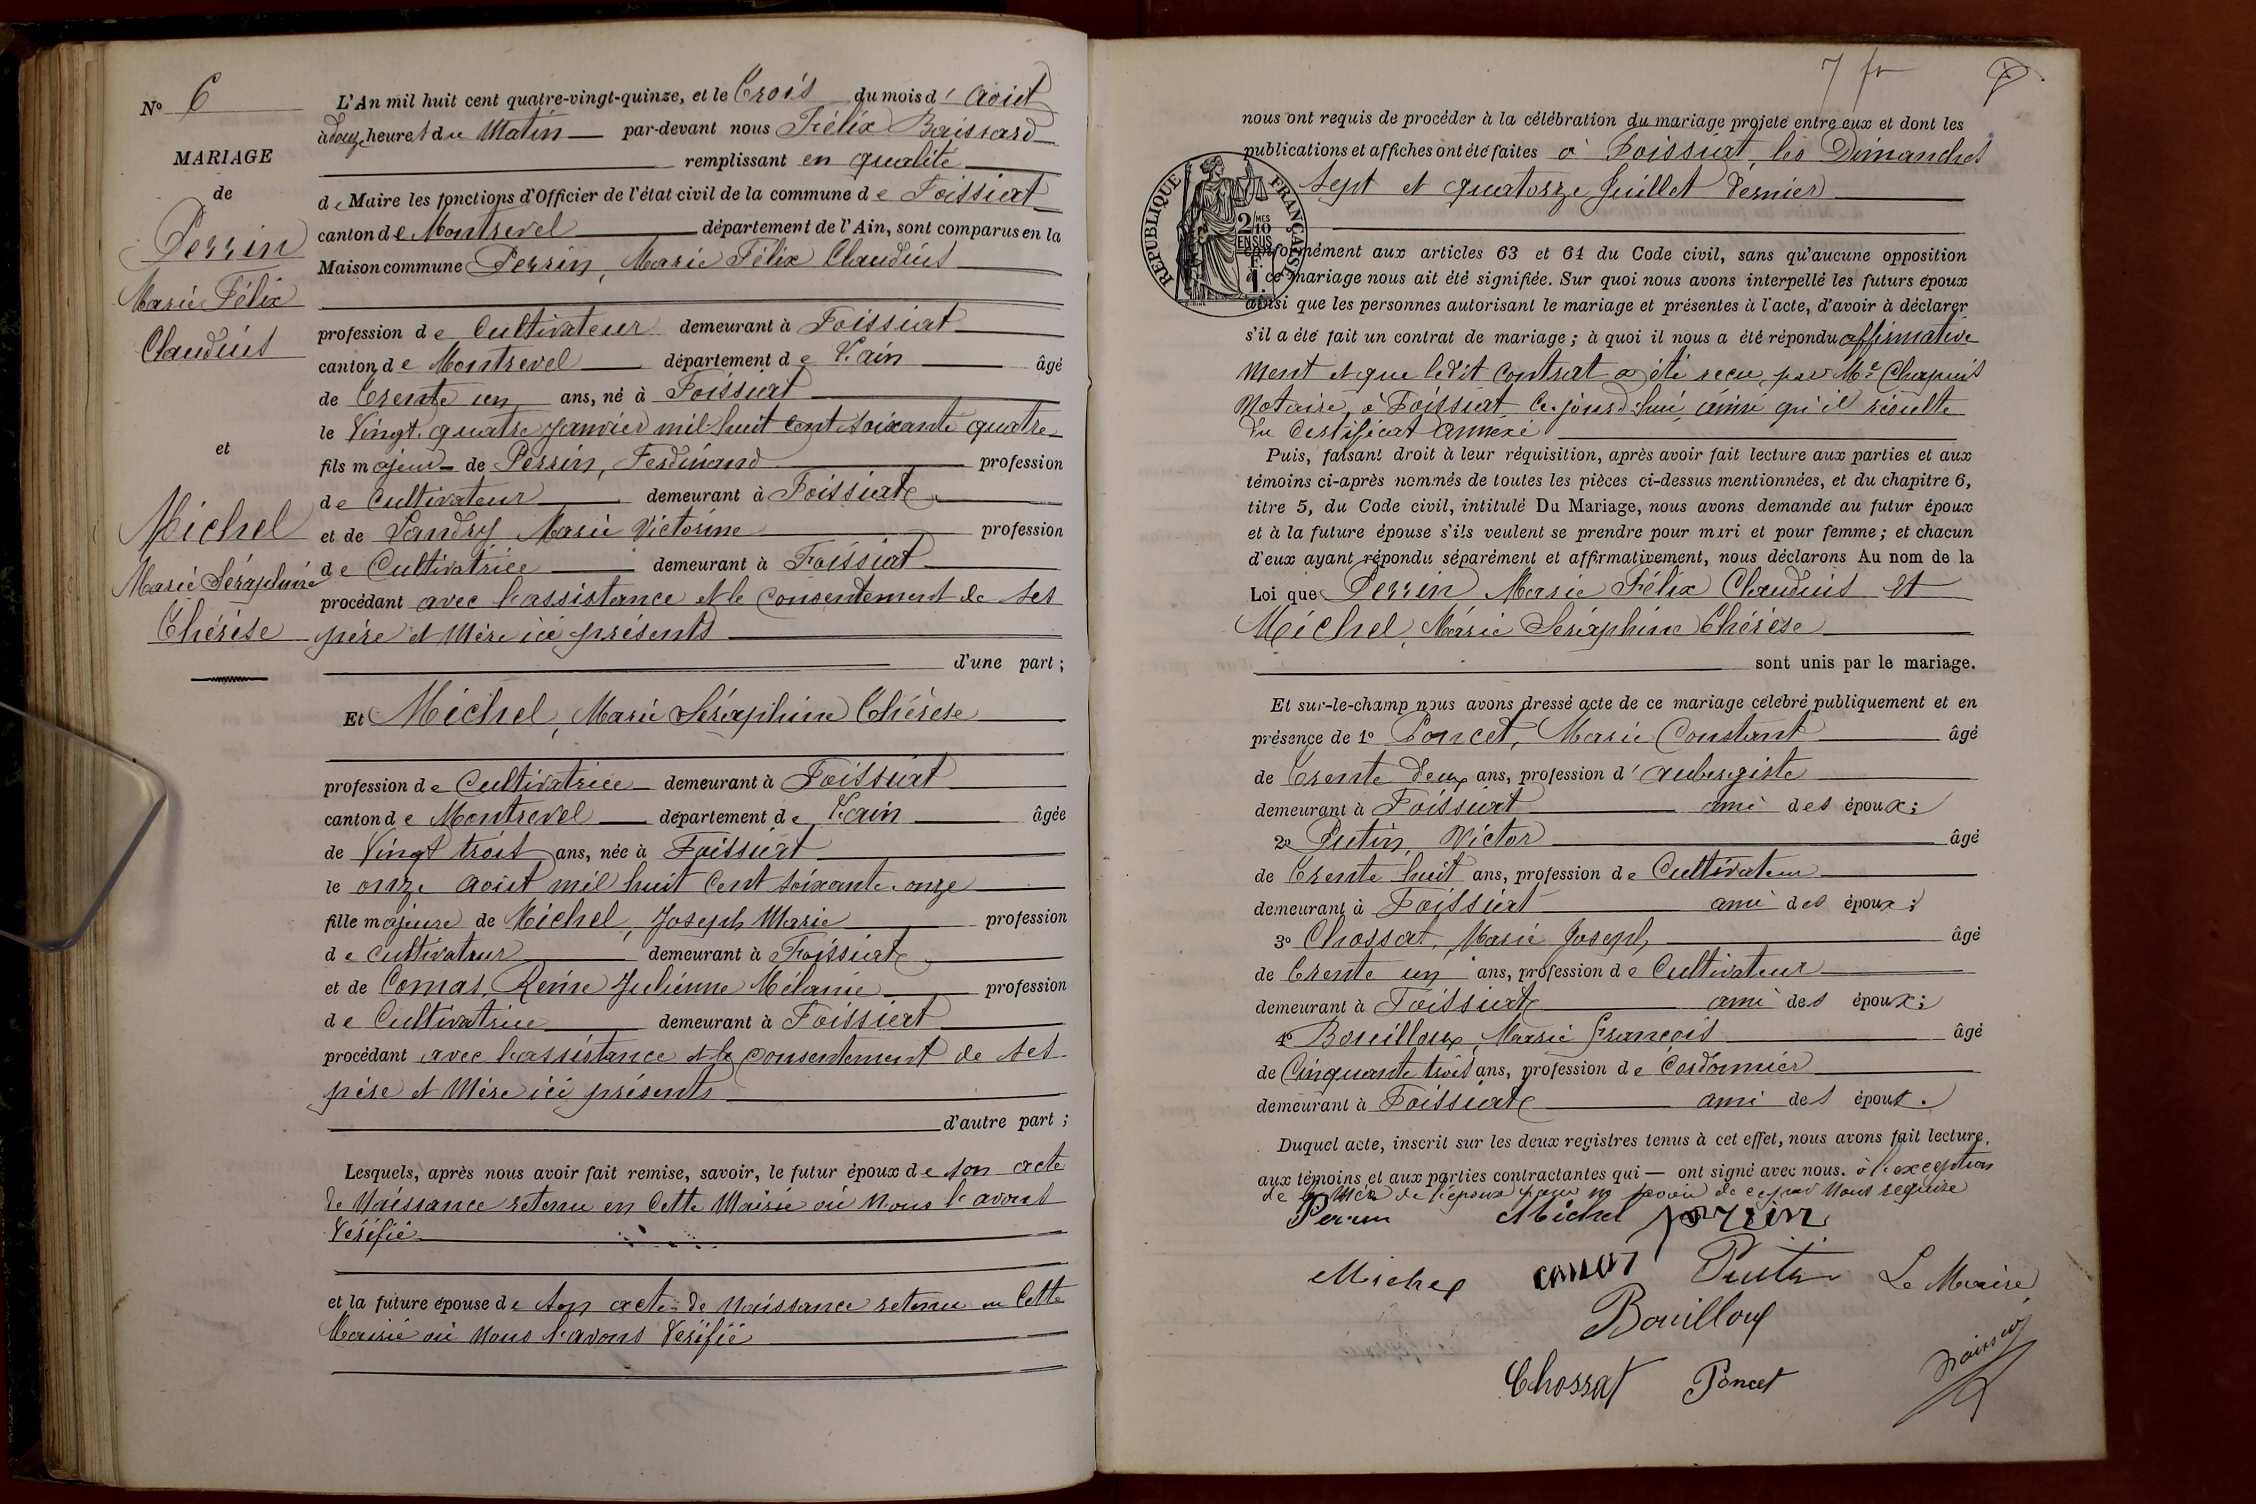 N° 6
MARIAGE
de
Perrin
Marie Félix
Claudius
et
Michel
Marie Séraphine
Thérèse
L'An mil huit cent quatre-vingt-quinze, et le Trois du mois d' Aout
à douze heures du Matin par-devant nous Félix Boissard
remplissant en qualité
de Maire les fonctions d'Officier de l'état civil de la commune de Foissiat
canton de Montrevel département de l'Ain, sont comparus en la
Maison commune Perrin, Marie Félix Claudius
profession de Cultivateur demeurant à Foissiat
canton de Montrevel département de l'ain âgé
de Trente un ans, né à Foissiat
le Vingt quatre Janvier mil huit cent soixante quatre
fils majeur de Perrin, Ferdinand profession
de Cultivateur demeurant à Foissiat
et de Pandry Marie Victorine profession
de Cultivatrice demeurant à Foissiat
procédant avec l'assistance et le consentement de ses
père et Mère ici présents
d'une part ;
Et Michel, Marie Séraphine Thérèse
profession de Cultivatrice demeurant à Foissiat
canton de Montrevel département de l'ain âgée
de Vingt trois ans, née à Foissiat
le onze aout mil huit cent soixante onze
fille majeure de Michel, Joseph Marie profession
de cultivateur demeurant à Foissiat
et de Comas, Reine Julienne Mélanie profession
de Cultivatrice demeurant à Foissiat
procédant avec l'assistance et le consentement de ses
père et Mère ici présents
d'autre part ;
Lesquels, après nous avoir fait remise, savoir, le futur époux de son acte
de Naissance retenu en cette Mairie où Nous l'avons
Vérifié
et la future épouse de son acte de Naissance retenu en cette
Mairie où Nous l'avons Vérifié
7 fr
nous ont requis de procéder à la célébration du mariage projeté entre eux et dont les
publications et affiches ont été faites à Foissiat, les Dimanches
sept et quatorze Juillet dernier
RÉPUBLIQUE FRANÇAISE
2/10MES
EN SUS
conformément aux articles 63 et 64 du Code civil, sans qu'aucune opposition
à ce mariage nous ait été signifiée. Sur quoi nous avons interpellé les futurs époux
ainsi que les personnes autorisant le mariage et présentes à l'acte, d'avoir à déclarer
s'il a été fait un contrat de mariage ; à quoi il nous a été répondu affirmative
ment et que ledit contrat a été recu par Me Chapuis
Notaire, à Foissiat ce jourd'hui, ainsi qu'il résulte
du Certificat annexé
Puis, faisant droit à leur réquisition, après avoir fait lecture aux parties et aux
témoins ci-après nommés de toutes les pièces ci-dessus mentionnées, et du chapitre 6,
titre 5, du Code civil, intitulé Du Mariage, nous avons demandé au futur époux
et à la future épouse s'ils veulent se prendre pour mari et pour femme ; et chacun
d'eux ayant répondu séparément et affirmativement, nous déclarons Au nom de la
Loi que Perrin Marie Félix Claudius et
Michel, Marie Séraphine Thérèse
sont unis par le mariage.
Et sur-le-champ nous avons dressé acte de ce mariage célébré publiquement et en
présence de 1° Poncet, Marie Constant âgé
de Trente deux ans, profession d'aubergiste
demeurant à Foissiat ami des époux ;
2° Putin, Victor âgé
de Trente huit ans, profession de Cultivateur
demeurant à Foissiat ami des époux ;
3° Chossat, Marie Joseph âgé
de Trente un ans, profession de Cultivateur
demeurant à Foissiat ami des époux ;
4° Bouilloux, Marie François âgé
de Cinquante trois ans, profession de Cordonnier
demeurant à Foissiat ami des époux.
Duquel acte, inscrit sur les deux registres tenus à cet effet, nous avons fait lecture,
aux témoins et aux parties contractantes qui — ont signé avec nous. à l'exception
de la Mère de l'époux pour ne savoir de ce par Nous requise
Perrin Michel perrin
Michel comas Putin Le Maire
Bouilloux
Chossat Poncet Boissard